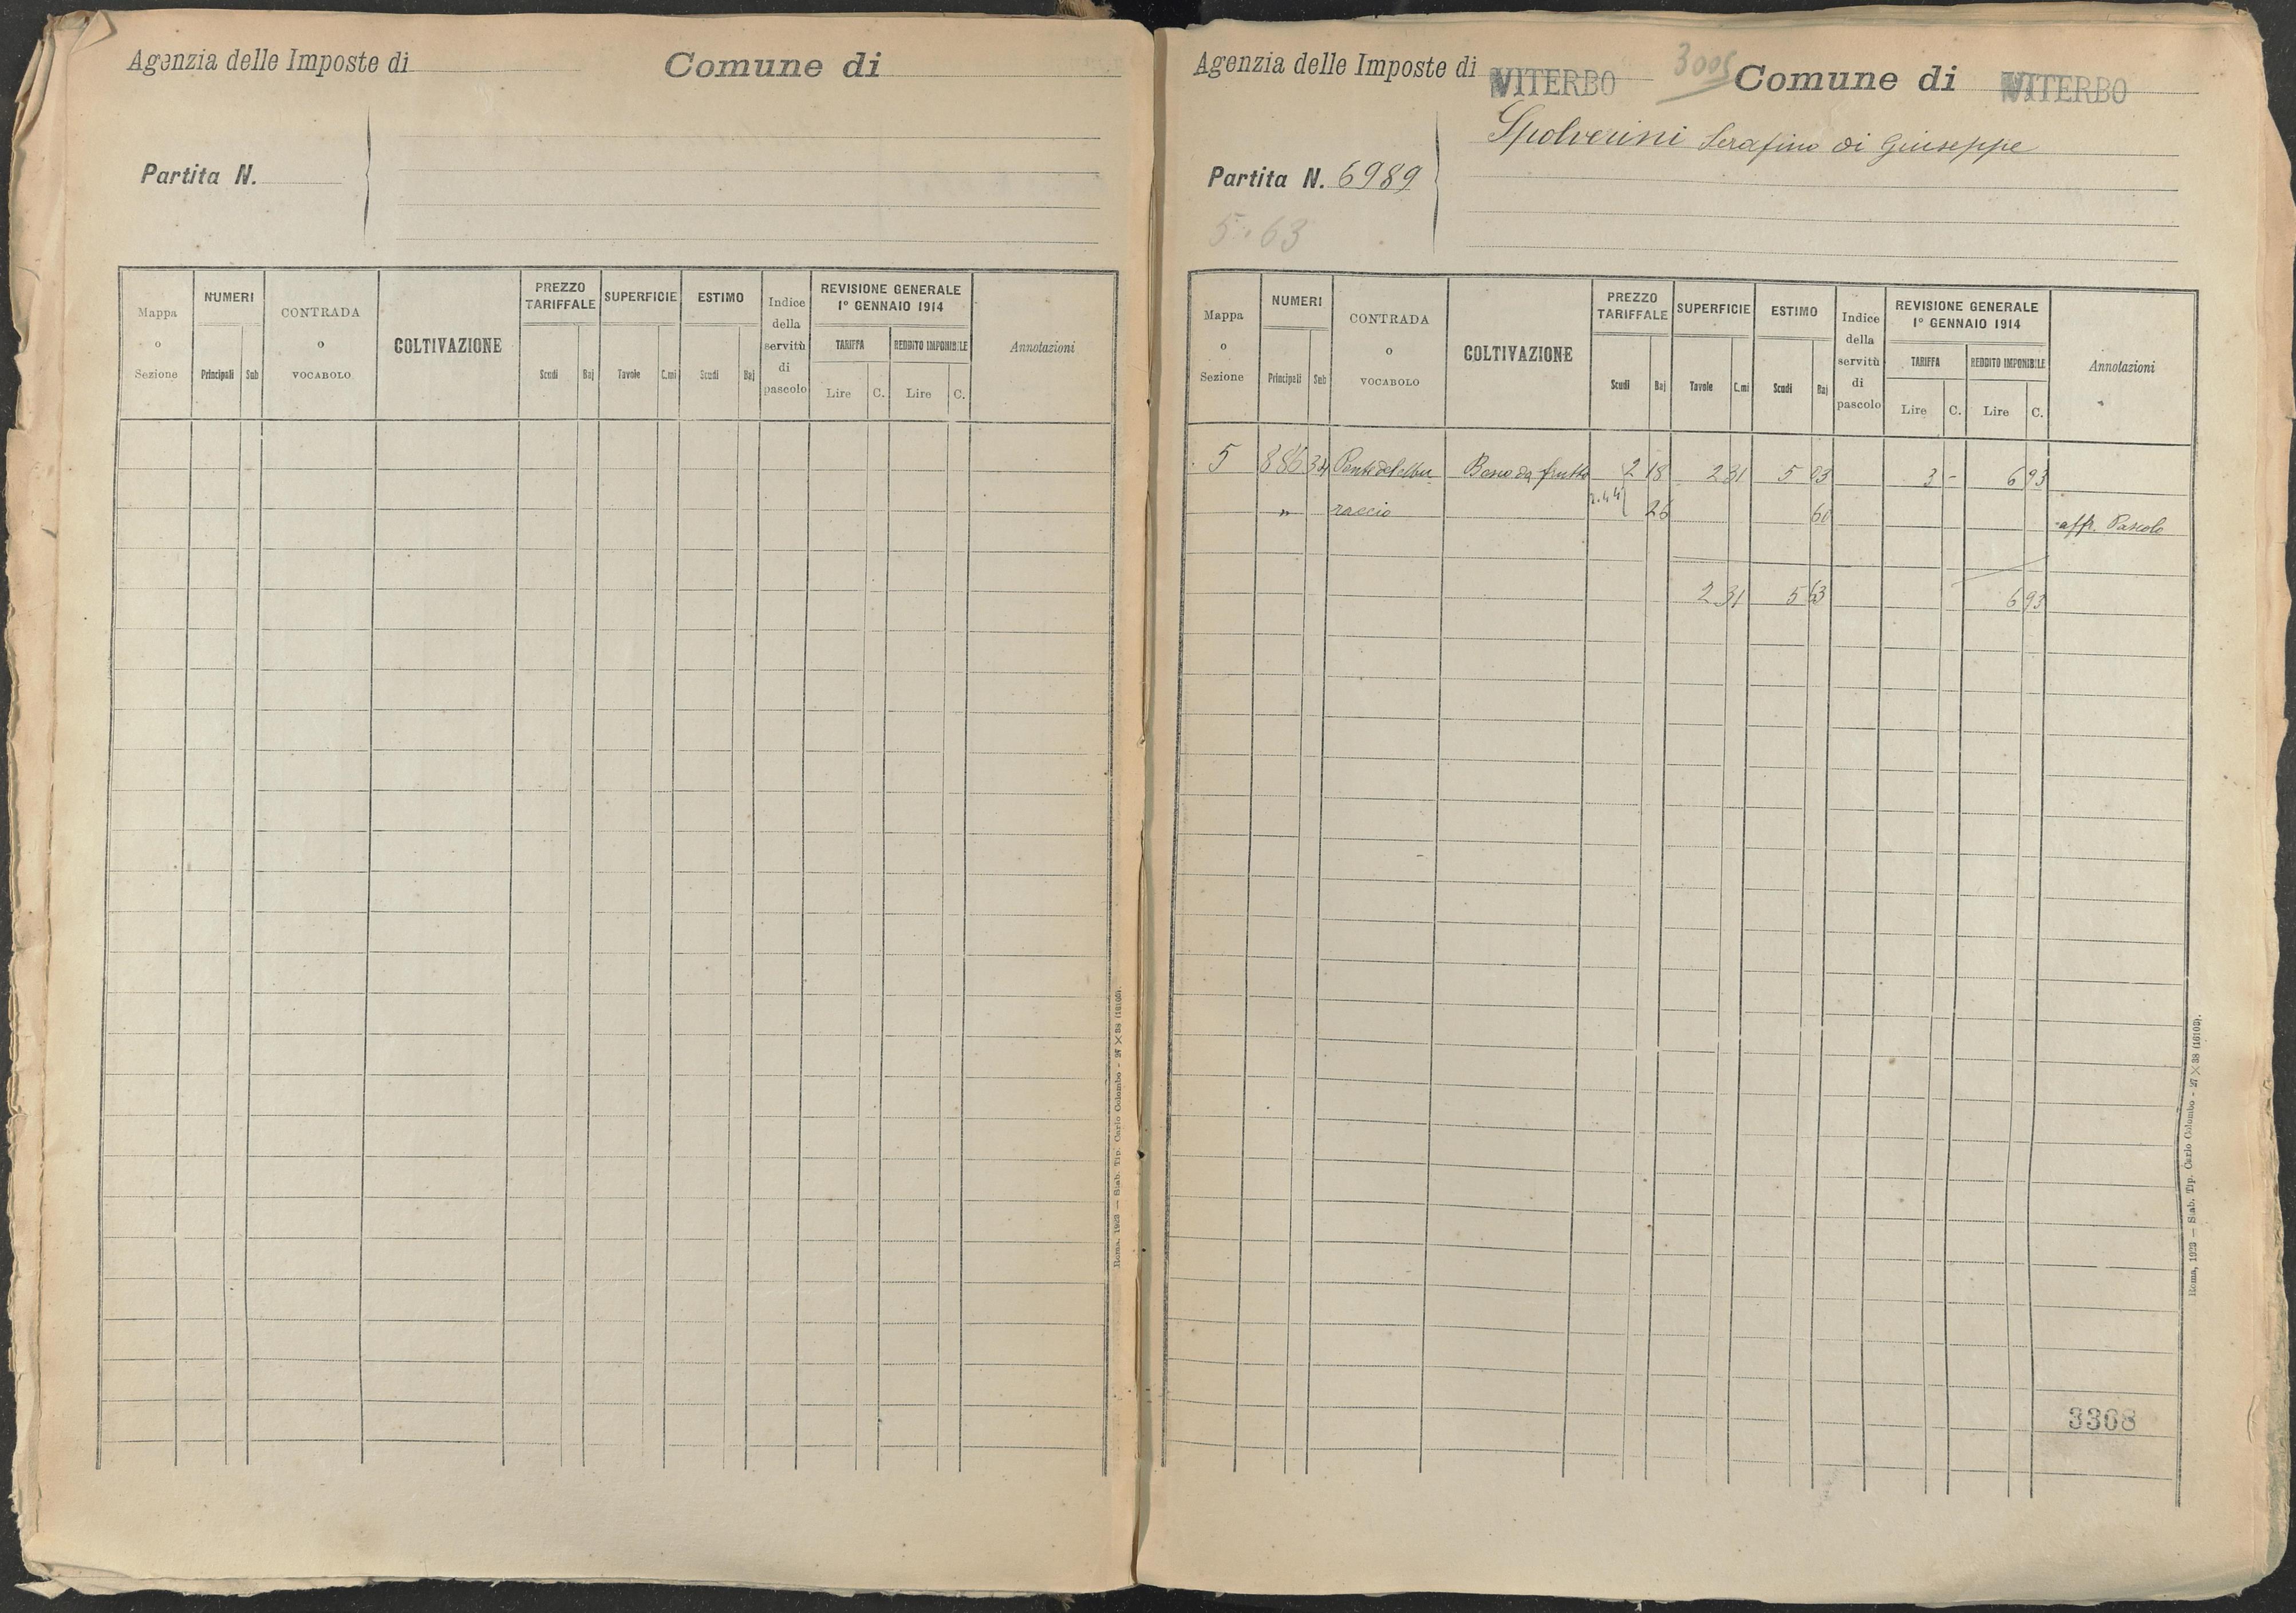 Agenzia delle Imposte di
Comune di
Partita N.
Mappa
o
Sezione
NUMERI
Principali
Sub
CONTRADA
o
VOCABOLO
COLTIVAZIONE
PREZZO
TARIFFALE
Scudi
Baj
SUPERFICIE
Tavole
C.mi
ESTIMO
Scudi
Baj
Indice
della
servitù
di
pascolo
REVISIONE GENERALE
1º GENNAIO 1914
TARIFFA
REDDITO IMPONIBILE
Lire
C.
Lire
C.
Annotazioni
Roma, 1923 — Stab. Tip. Carlo Colombo - 27 × 38 (16103).
Agenzia delle Imposte di VITERBO
3005
Comune di VITERBO
Spolverini Serafino di Giuseppe
Partita N. 6989
5.63
Mappa
o
Sezione
NUMERI
Principali
Sub
CONTRADA
o
VOCABOLO
COLTIVAZIONE
PREZZO
TARIFFALE
Scudi
Baj
SUPERFICIE
Tavole
C.mi
ESTIMO
Scudi
Baj
Indice
della
servitù
di
pascolo
REVISIONE GENERALE
1º GENNAIO 1914
TARIFFA
REDDITO IMPONIBILE
Lire
C.
Lire
C.
Annotazioni
5 886 34 Bosco da frutto 2 18 2 31 5 03 3 - 6 93
" raccio 2.44 26 60 aff. Pascolo
2 31 5 63 6 93
3368
Roma, 1923 — Stab. Tip. Carlo Colombo - 27 × 38 (16103).